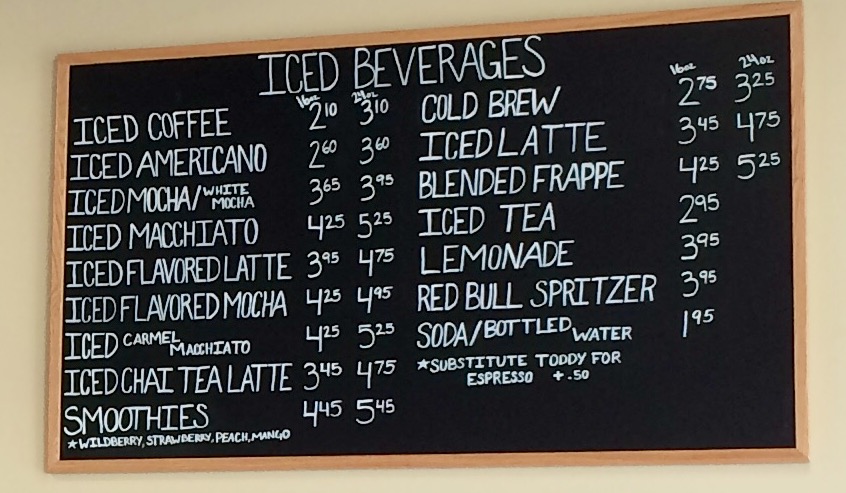 ICED BEVERAGES
16oz 24oz
ICED COFFEE 2 10 3 10
ICED AMERICANO 2 60 3 60
ICED MOCHA/WHITE MOCHA 3 65 3 95
ICED MACCHIATO 4 25 5 25
ICED FLAVORED LATTE 3 95 4 75
ICED FLAVORED MOCHA 4 25 4 95
ICED CARMEL MACCHIATO 4 25 5 25
ICED CHAI TEA LATTE 3 45 4 75
SMOOTHIES 4 45 5 45
*WILDBERRY, STRAWBERRY, PEACH, MANGO
16oz 24oz
COLD BREW 2 75 3 25
ICED LATTE 3 45 4 75
BLENDED FRAPPE 4 25 5 25
ICED TEA 2 95
LEMONADE 3 95
RED BULL SPRITZER 3 95
SODA/BOTTLED WATER 1 95
*SUBSTITUTE TODDY FOR
ESPRESSO +.50